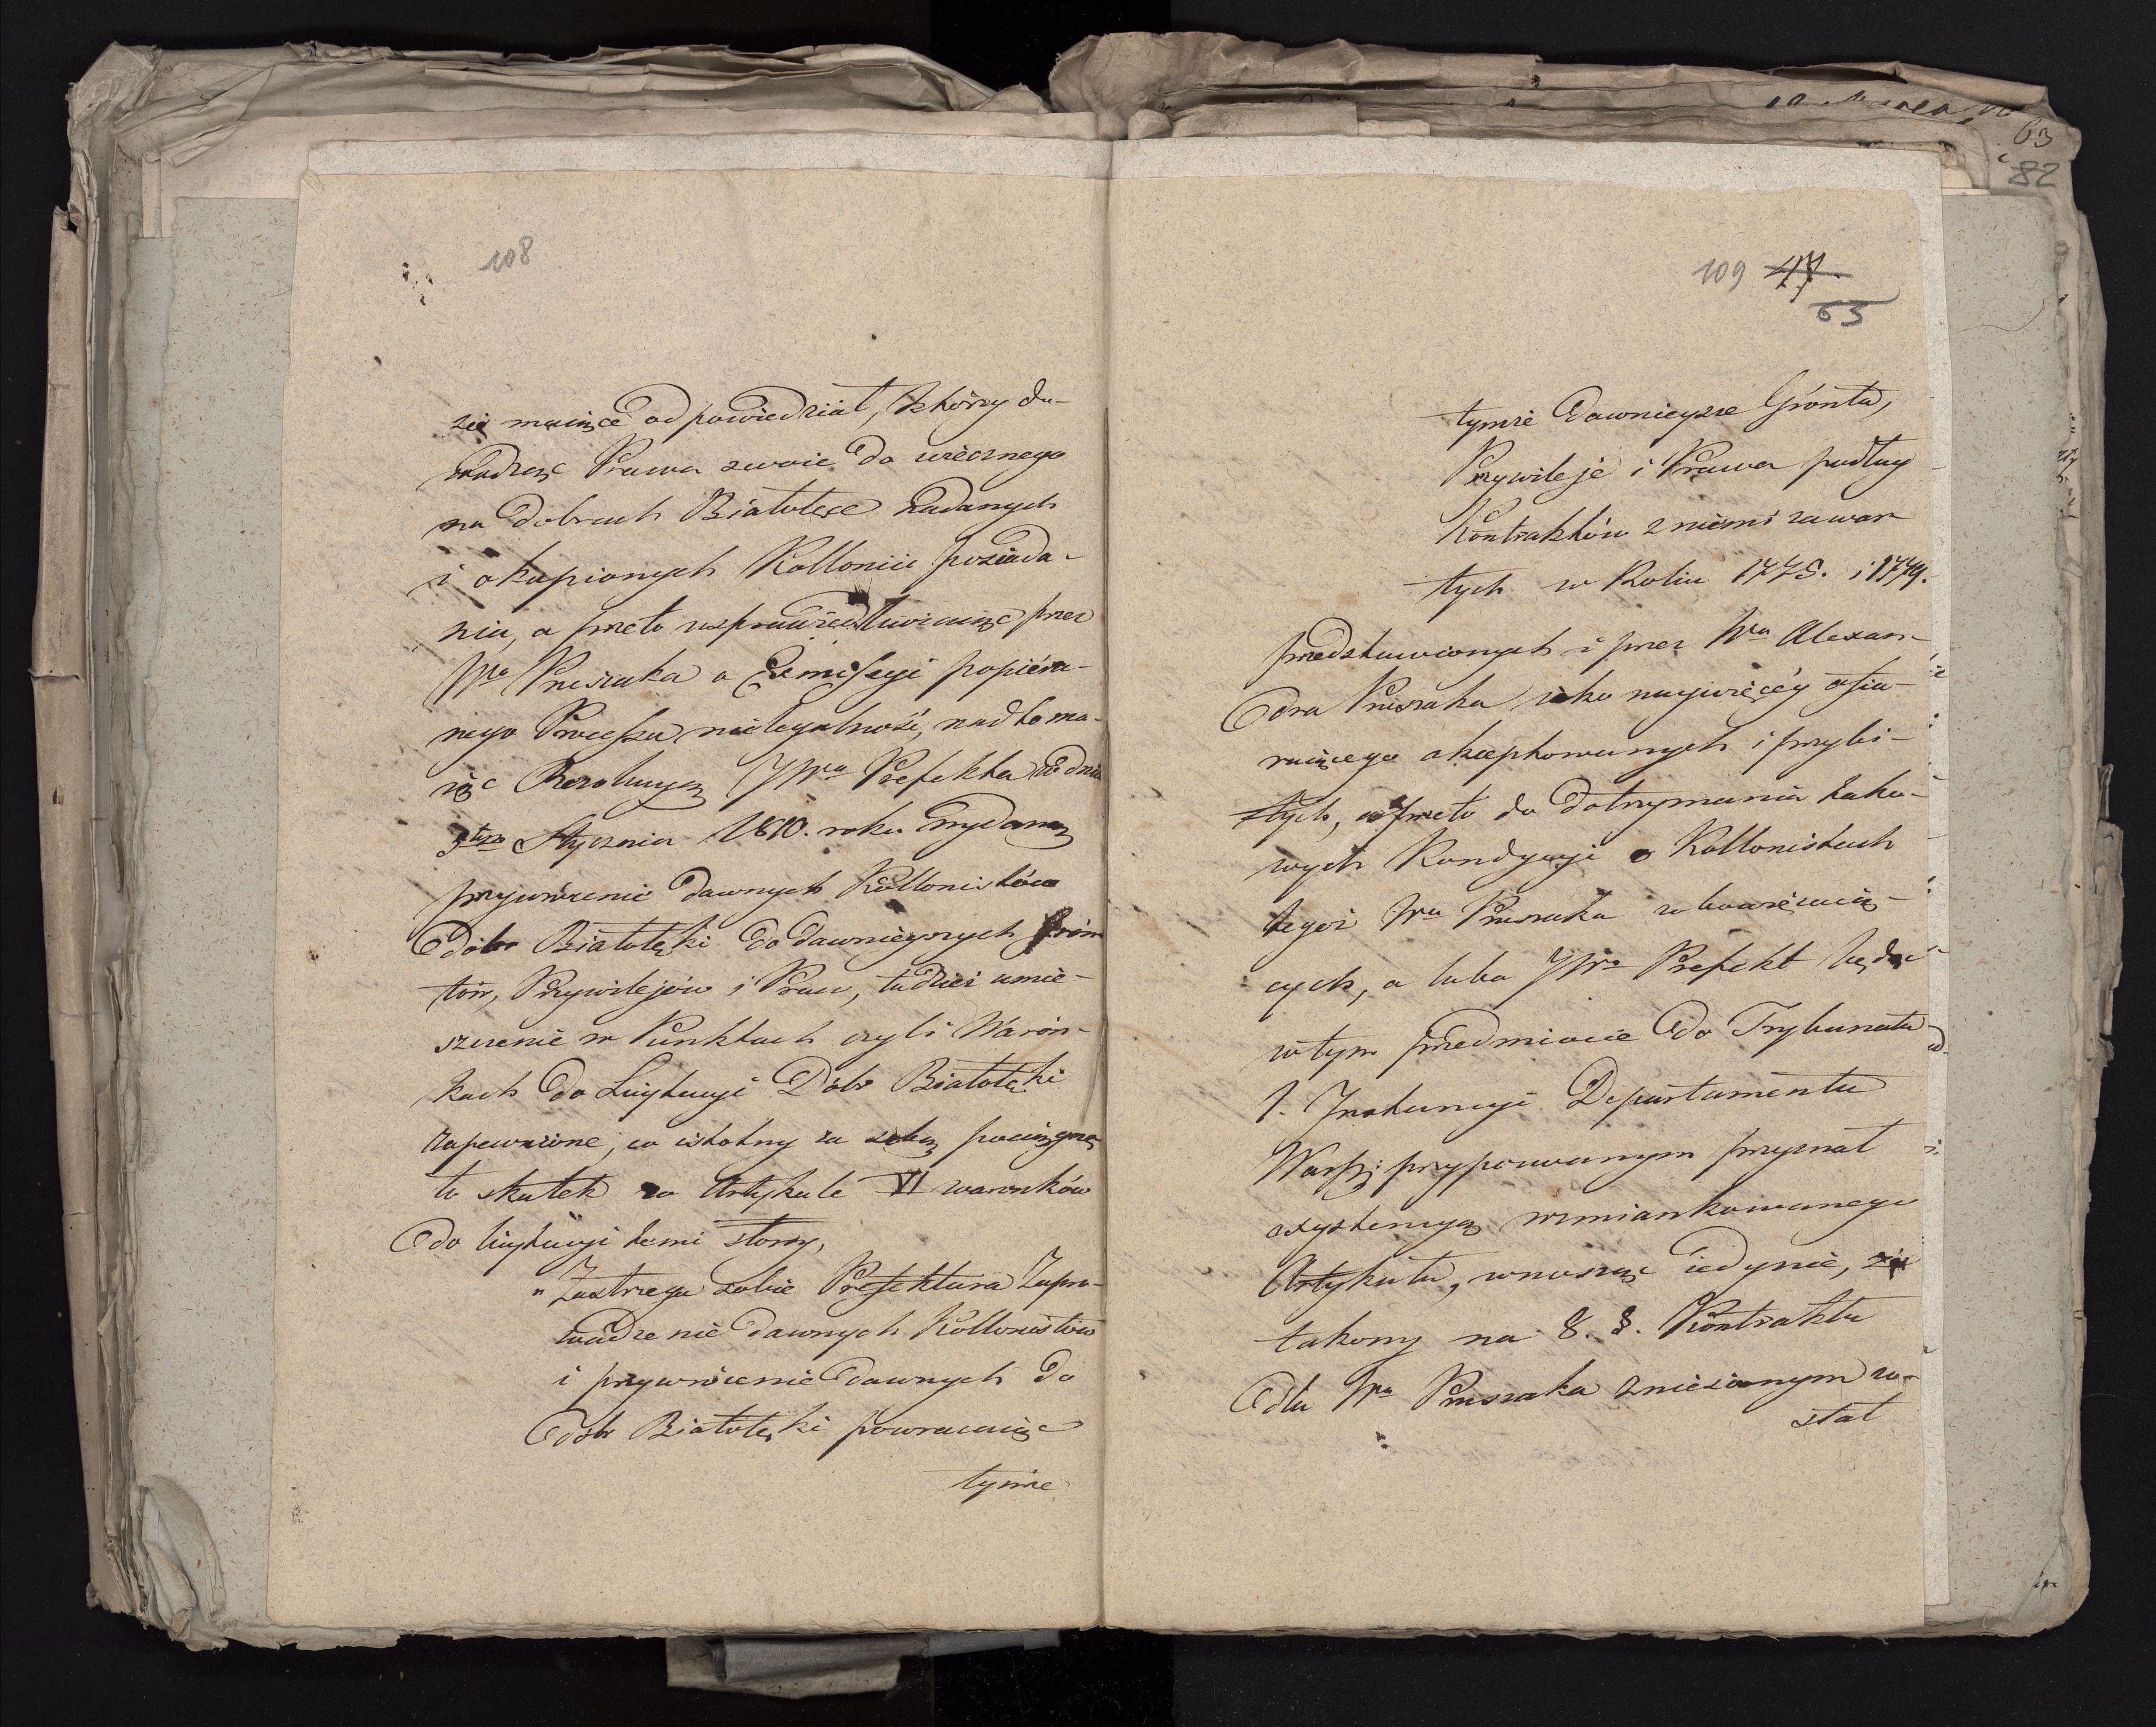 108
się maiące odpowiedział, którzy do-
wodząc Prawa swoie do wiecznego
na Dobrach Białołęce nadanych
i okupionych Kollonii posiada-
nia, a przeto usprawiedliwiaiąc przez
Wo Pruszaka o Exmissyi popiera-
nego Processu nielegalność, nadto ma-
iąc Rezolucyą JWo Prefekta w dniu
3tym Stycznia 1810. roku wydaną
przywrócenie dawnych Kollonistów
dóbr Białołęki do dawnieyszych Gróm
tów, Przywilejów i Praw, tudzież umie-
szczenie w Punktach czyli Warón-
kach do Licytacyi Dóbr Białołęki
zapewnione, co istotny za sobą pociągnę
ło skutek w Artykule VI warunków
do licytacyi temi słowy,
" Zastrzega sobie Prefektura Zapro-
wadzenie dawnych Kollonistów
i przywrócenie dawnych do
dóbr Białołęki powracaiąc
tymże
109 47.
63
tymże dawnieysze Grónta,
Przywileje i Prawa podług
Kontraktów z niemi zawar
tych w Roku 1775. i 1779.
przedstawionych i przez Wa Alexan-
dra Pruszaka iako naywięcéy ofia-
ruiącego akceptowanych i przyię-
tych, a przeto do dotrzymania tako-
wych Kondycyi o Kollonistach
tegoż Wa Pruszaka zobowięzuią-
cych, a lubo JWo Prefekt będąc
w tym przedmiocie do Trybunału
1. Instancyi Departamentu
Warsz: przypozwanym przyznał
exystencyą wzmiankowanego
Artykułu, wnosząc iedynie, że
takowy na 8. §. Kontraktu
dla Wa Pruszaka zniesionym zo-
stał
63
82